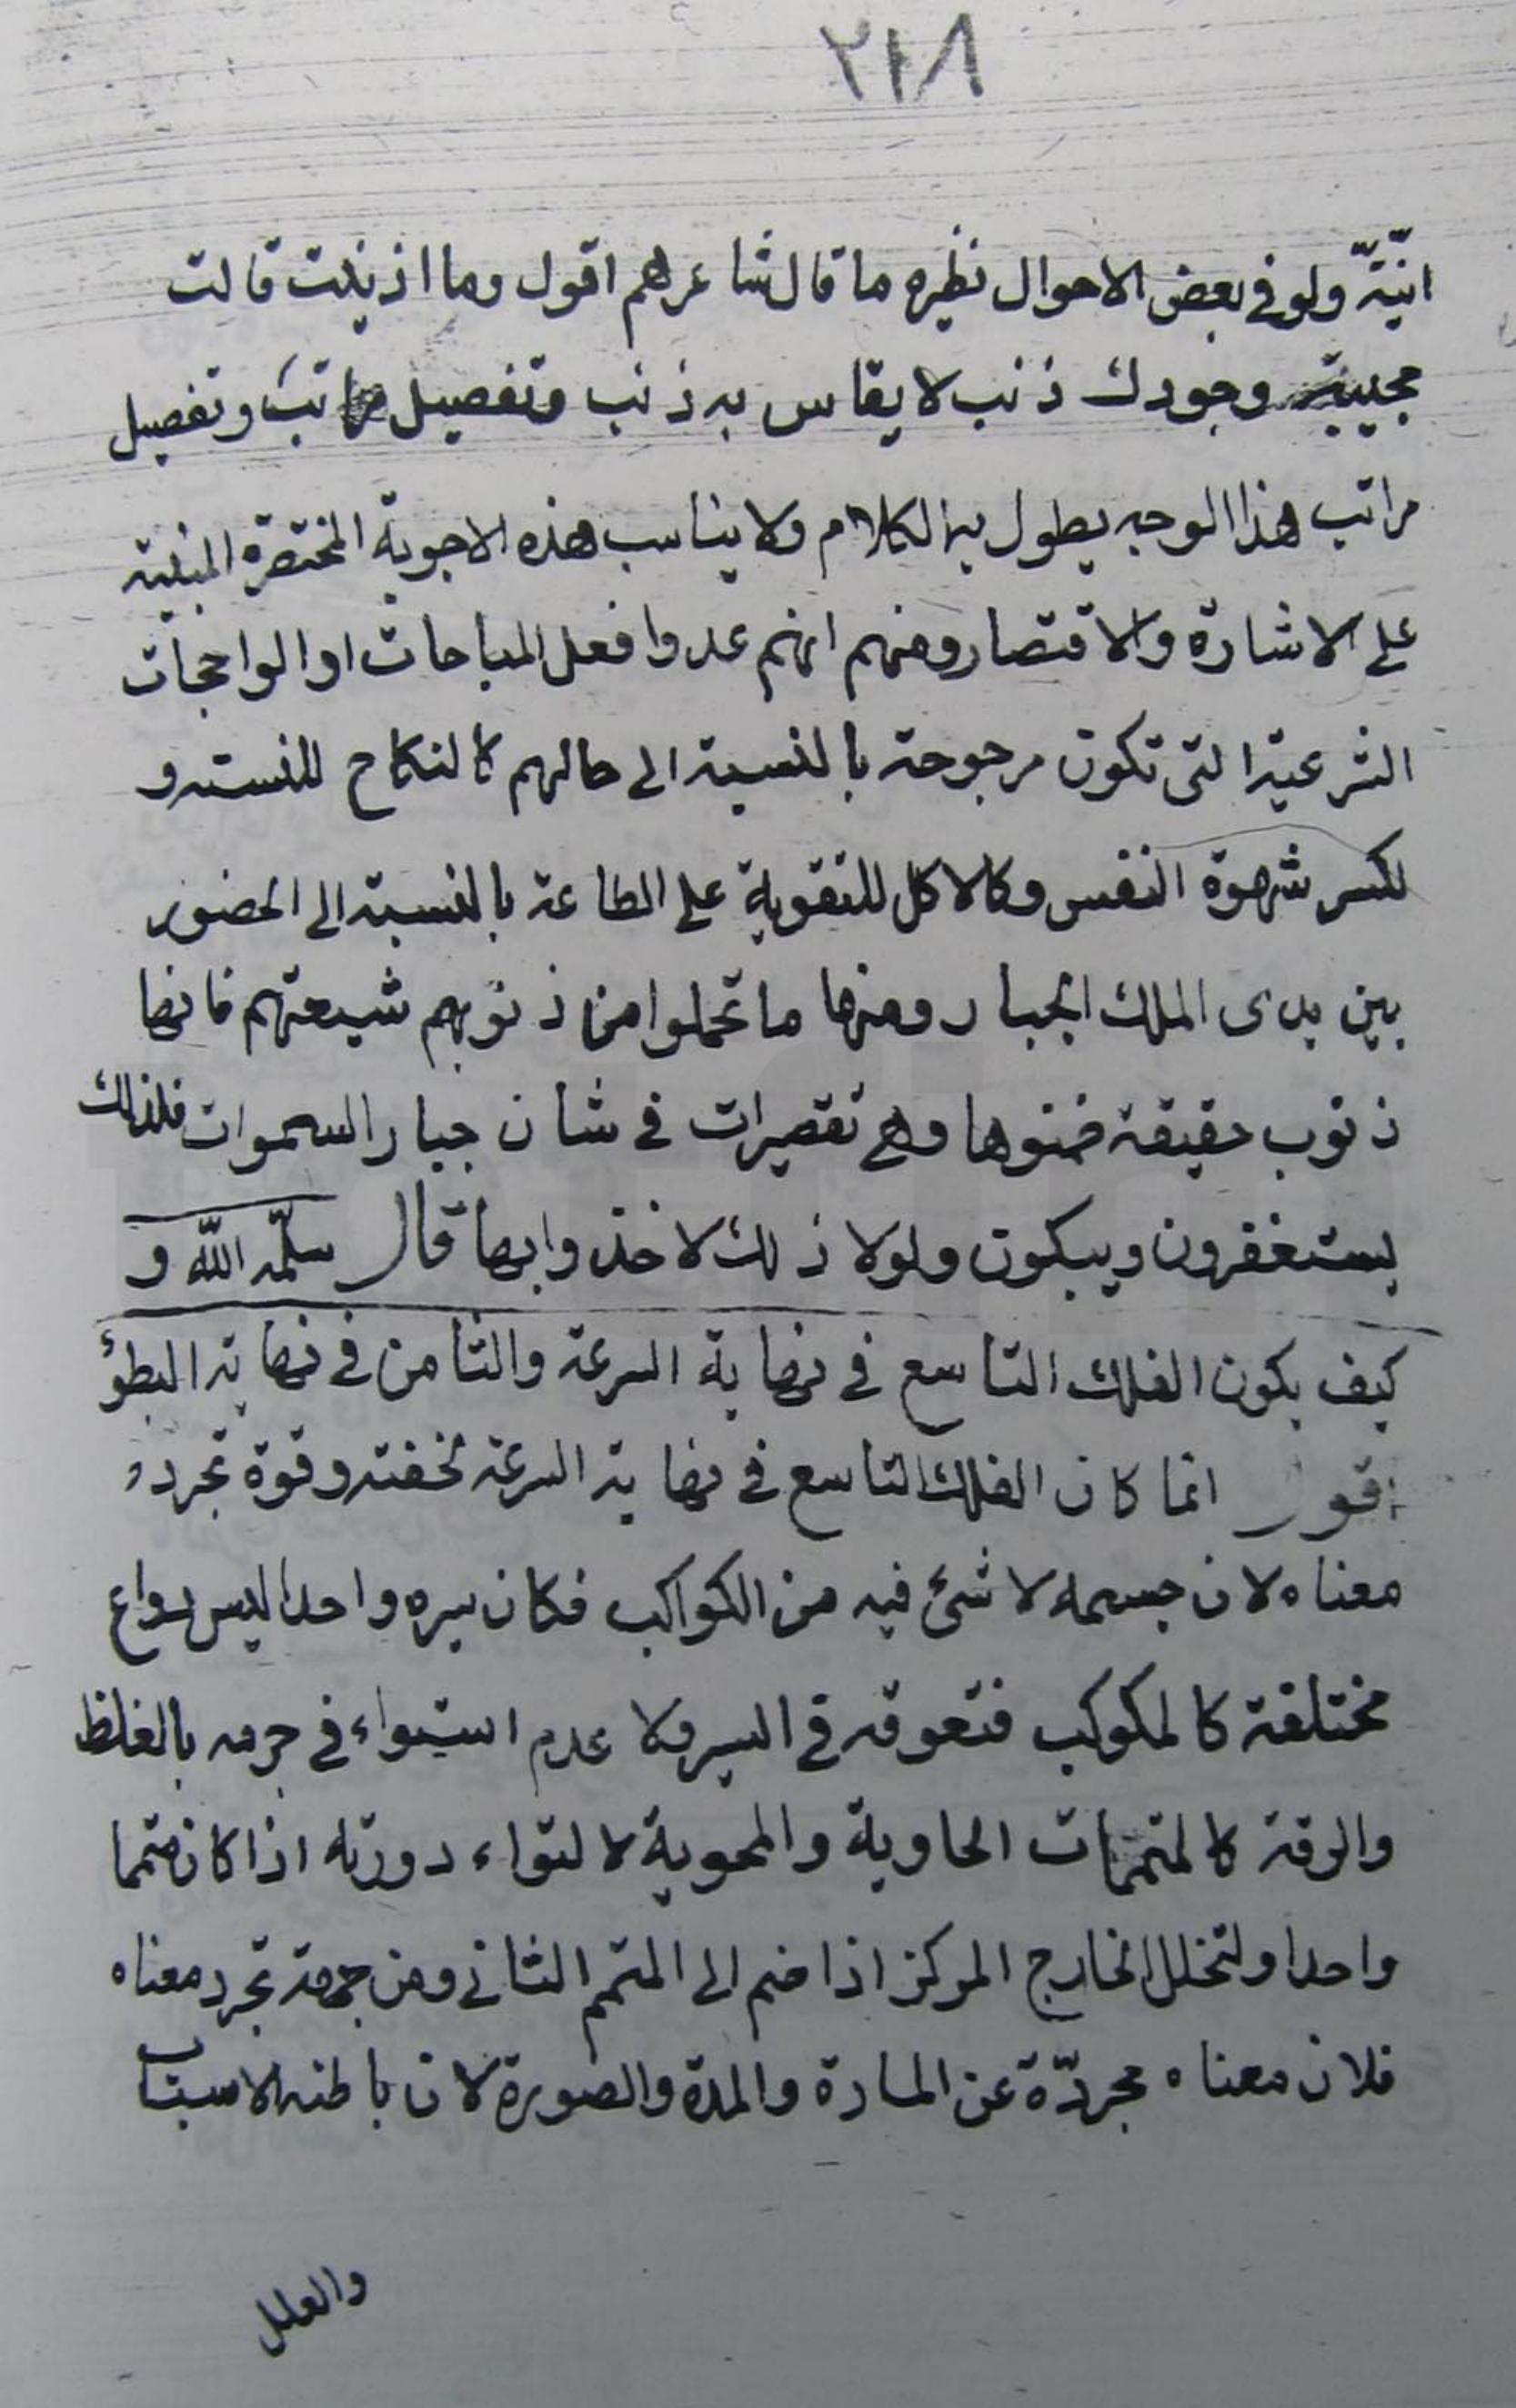 ٢١٨
انيّتّه ولو في بعض الاحوال نظيره ما قال شاعرهم اقول وما اذنبت قالت
مجيبة وجودك ذنب لا يقاس به ذنب وتفصيل مراتب وتفصيل
مراتب هذا الوجه يطول به الكلام ولا يناسب هذه الاجوبة المختصرة المبنية
على الاشارة والاقتصار ومنهم انهم عدوا فعل المباحات او الواجبات
الشرعية التى تكون مرجوحة بالنسبة الى حالهم كالنكاح للنسـ و
لكسر شهوة النفس وكالاكل للتقوية على الطاعة بالنسبة الى الحضور
بين يدى الملك الجبار ومنها ما تحملوا من ذنوبهم شيعتهم فانها
ذنوب حقيقة ضمنوها وهى تقصيرات في شان جبار السموات فلذلك
يستغفرون ويبكون ولولا ذلك لاخذوا بها قال سلّمه اللّه و
كيف يكون الفلك التاسع في نهاية السرعة والثامن في نهاية البطؤ
اقول انما كان الفلك التاسع في نهاية السرعة لخفته وقوة تجرد
معناه لان جسمه لا شئ فيه من الكواكب فكان سيره واحدا ليس بدواع
مختلفة كالمكوكب فتعوقه في السير ولا عدم استواء في جرمه بالغلظ
والرقة كالمتممات الحاوية والمحوية لالتواء دورته اذا كان متمما
واحدا ولتخلل الخارج المركز اذا ضم الى المتمم الثانى ومن جهة تجرد معناه
فلان معناه مجردّة عن المادة والمدة والصورة لان باطنه الاسباب
والعلل